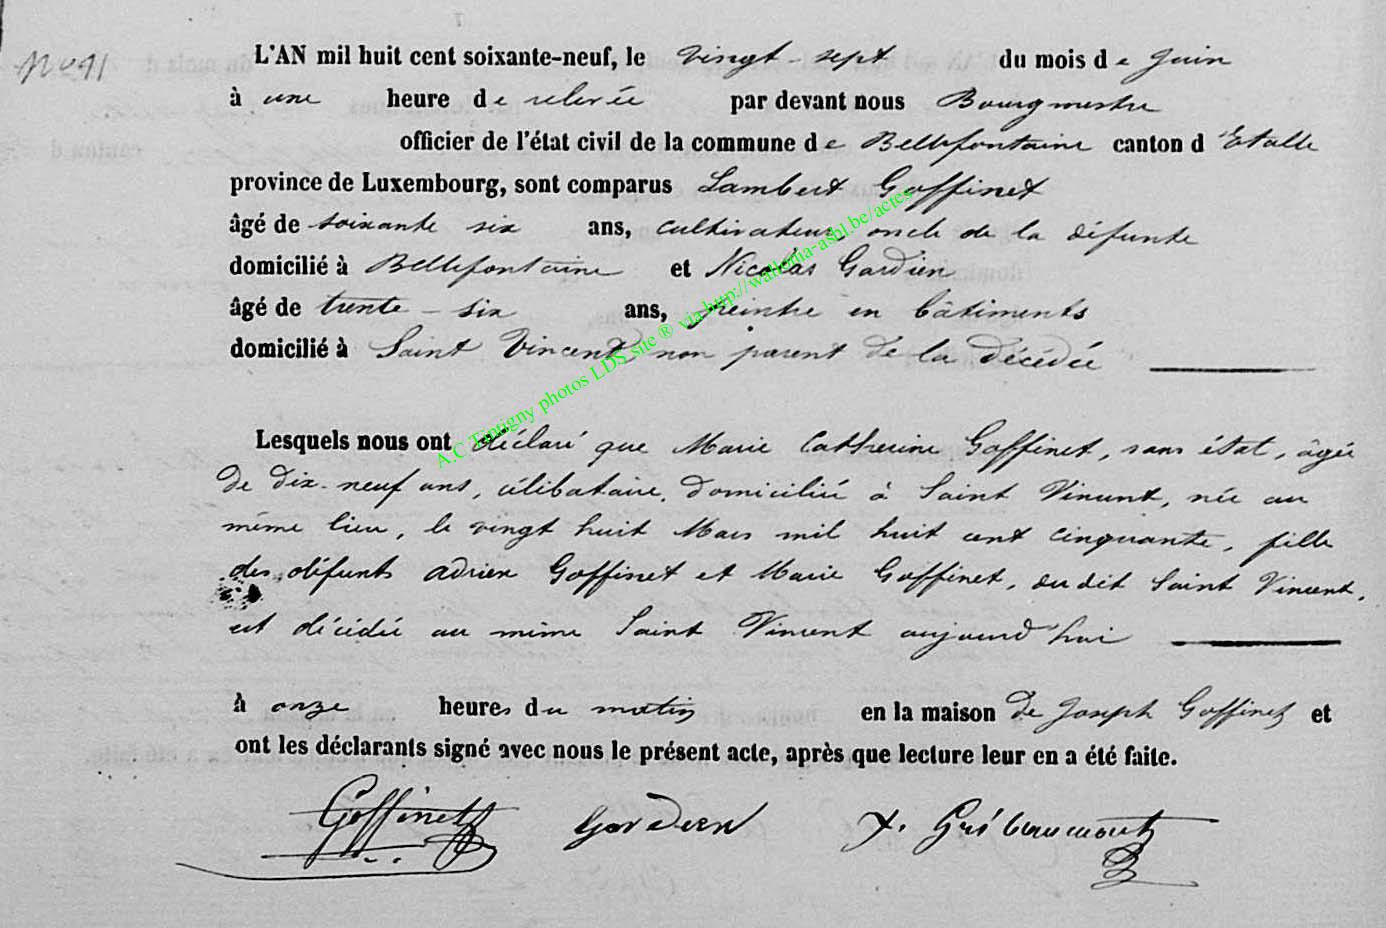 N° 91
L'AN mil huit cent soixante-neuf, le vingt-sept du mois de Juin
à une heure de relevée par devant nous Bourgmestre
officier de l'état civil de la commune de Bellefontaine canton d'Etalle
province de Luxembourg, sont comparus Lambert Goffinet
âgé de soixante six ans, cultivateur, oncle de la défunte
domicilié à Bellefontaine et Nicolas Gardien
âgé de trente-six ans, peintre en bâtiments
domicilié à Saint Vincent non parent de la décédée
Lesquels nous ont déclaré que Marie Catherine Goffinet, sans état, âgée
de dix-neuf ans, célibataire, domiciliée à Saint Vincent, née au
même lieu, le vingt huit Mars mil huit cent cinquante, fille
des défunts Adrien Goffinet et Marie Goffinet, du dit Saint Vincent,
est décédée au même Saint Vincent aujourd'hui
à onze heures du matin en la maison de Joseph Goffinet et
ont les déclarants signé avec nous le présent acte, après que lecture leur en a été faite.
Goffinet Gardien
A.C Tintigny photos LDS site ® via http://wallonia-asbl.be/actes